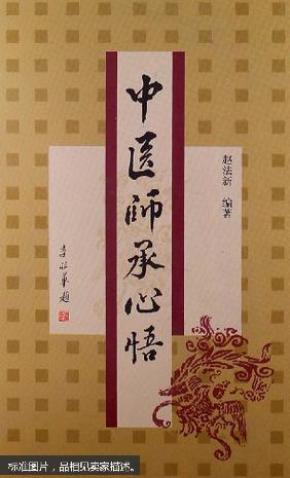 中医师承心悟
赵法新 编著
李振华题
标准图片，品相见卖家描述。